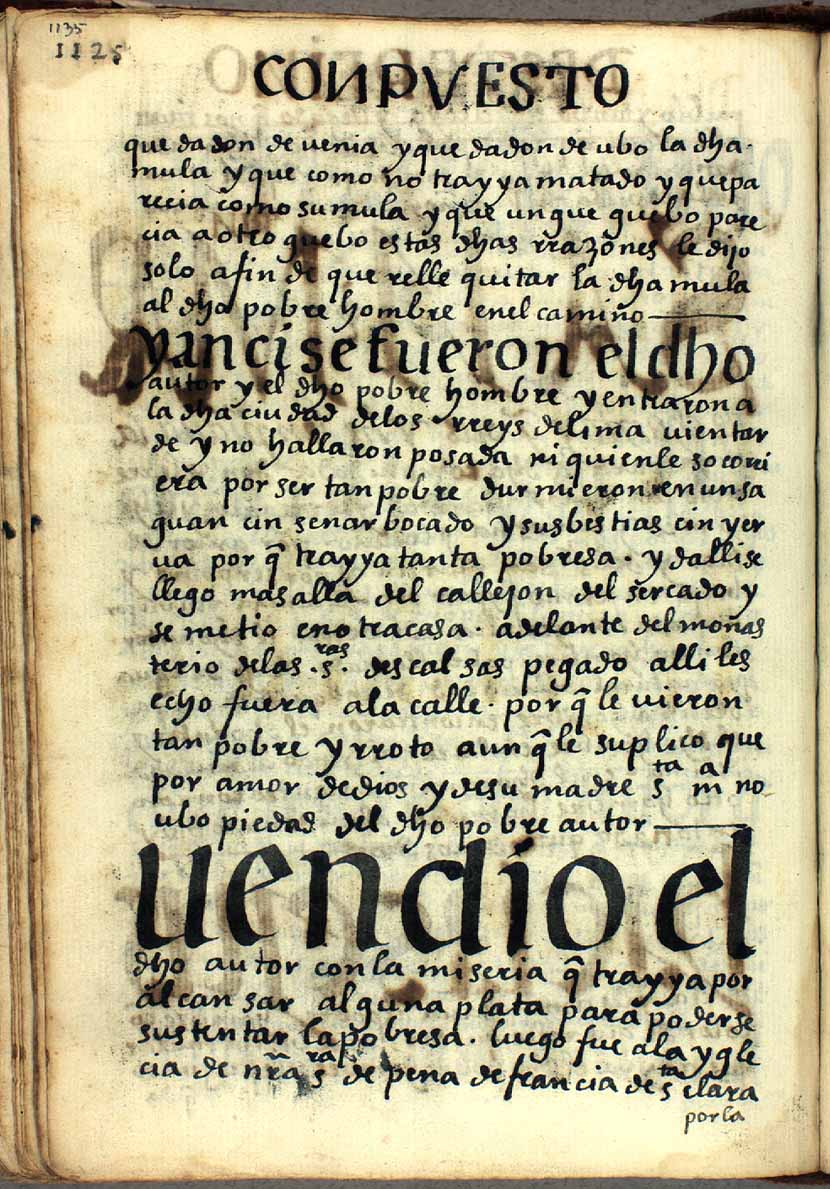 1135
1125
CONPVESTO
que dadon de uenia y que dadon de ubo la dha
mula y que como no trayya matado y que pa
recia como su mula y que un gue guebo pare
cia a otro guebo estas dhas rrazones le dijo
solo a fin de que relle quitar la dha mula
al dho pobre hombre en el camino
yanci se fueron el dho
autor y el dho pobre hombre y entraron a
la dha ciudad de los rreys de lima uientar
de y no hallaron posada ni quien le socorri
era por ser tan pobre durmieron en un sa
guan cin senar bocado y sus bestias cin yer
ua por q̃ trayya tanta pobresa. y dalli se
llego mas alla del callejon del sercado y
se metio en otra casa. adelante del monas
terio de las .s.ras descalsas pegado alli les
echo fuera a la calle. por q̃ le uieron
tan pobre y rroto aun q̃ le suplico que
por amor de dios y de su madre s.ta m.a no
ubo piedad del dho pobre autor
uendio el
dho autor con la miseria q̃ trayya por
alcansar alguna plata para poderse
sustentar la pobresa. luego fue a la ygle
cia de nr̃a s.ra de pena de francia de s.ta clara
por la